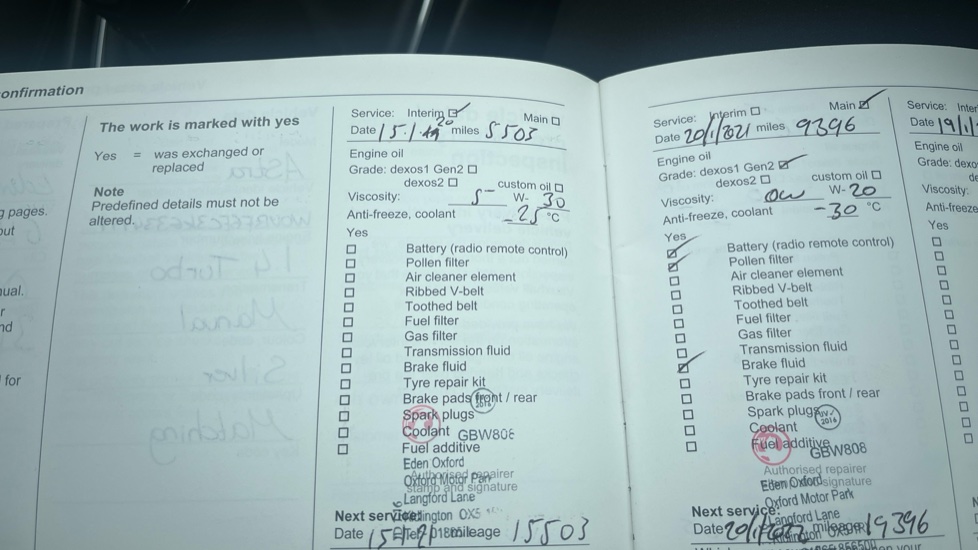 onfirmation
The work is marked with yes
Yes = was exchanged or
replaced
Note
Predefined details must not be
altered.
g pages.
out
nual.
r
nd
for
Service: Interim ☑ Main ☐
Date 15/1/20 miles 5503
Engine oil
Grade: dexos1 Gen2 ☐
dexos2 ☐ custom oil ☐
Viscosity: 5 W- 30
Anti-freeze, coolant -25 °C
Yes
☐ Battery (radio remote control)
☐ Pollen filter
☐ Air cleaner element
☐ Ribbed V-belt
☐ Toothed belt
☐ Fuel filter
☐ Gas filter
☐ Transmission fluid
☐ Brake fluid
☐ Tyre repair kit
☐ Brake pads front / rear
☐ Spark plugs
☐ Coolant GBW808
☐ Fuel additive
Eden Oxford
Authorised repairer
Oxford Motor Park
stamp and signature
Langford Lane
Next service:
Date 15/1/21 mileage 15503
Service: Interim ☐ Main ☑
Date 20/1/2021 miles 9396
Engine oil
Grade: dexos1 Gen2 ☑
dexos2 ☐ custom oil ☐
Viscosity: 0W W- 20
Anti-freeze, coolant -30 °C
Yes
☑ Battery (radio remote control)
☑ Pollen filter
☐ Air cleaner element
☐ Ribbed V-belt
☐ Toothed belt
☐ Fuel filter
☐ Gas filter
☐ Transmission fluid
☑ Brake fluid
☐ Tyre repair kit
☐ Brake pads front / rear
☐ Spark plugs
☐ Coolant
☐ Fuel additive
GBW808
Authorised repairer
Eden Oxford signature
Oxford Motor Park
Next service: Langford Lane
Date 20/1/2022 mileage 19396
Service: Inter
Date 19/1/
Engine oil
Grade: dexo
de
Viscosity:
Anti-freeze
Yes